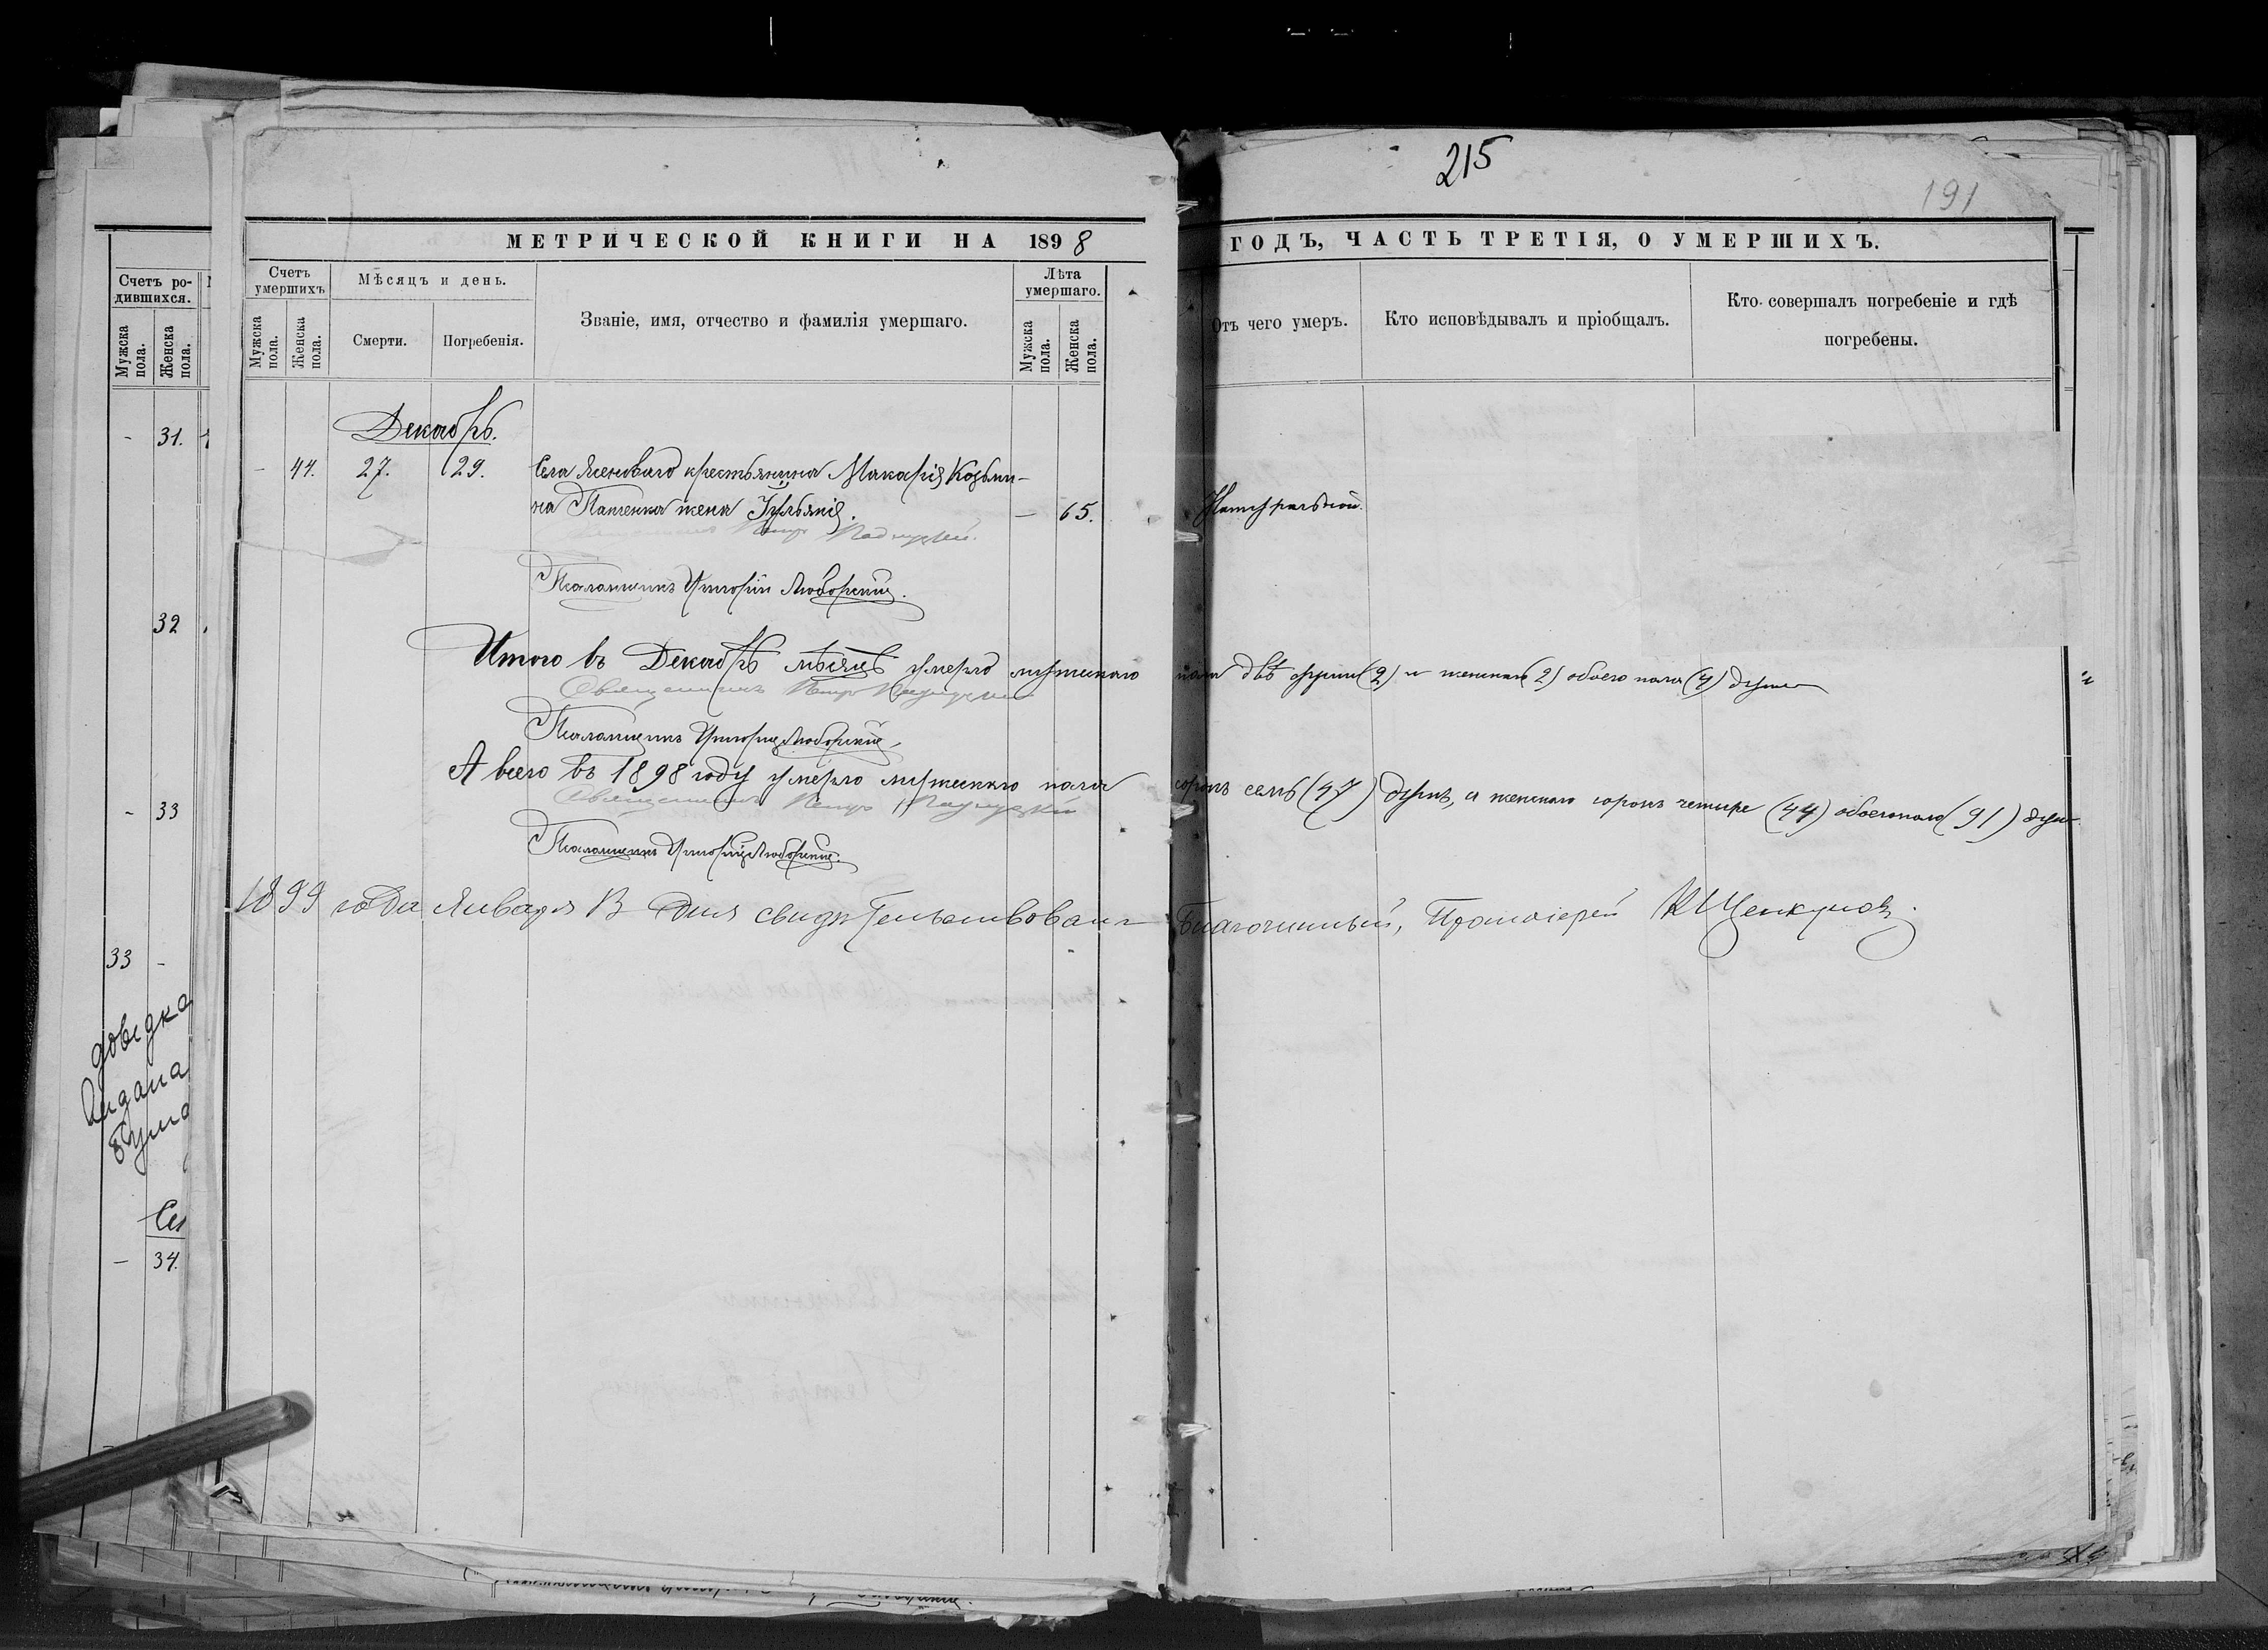 215
191
МЕТРИЧЕСКОЙ КНИГИ НА 1898
ГОДЪ, ЧАСТЬ ТРЕТІЯ, О УМЕРШИХЪ.
Счетъ умершихъ
Мѣсяцъ и день.
Званіе, имя, отчество и фамилія умершаго.
Лѣта умершаго.
Отъ чего умеръ.
Кто исповѣдывалъ и пріобщалъ.
Кто совершалъ погребеніе и гдѣ
погребены.
Мужска пола.
Женска пола.
Смерти.
Погребенія.
Мужска пола.
Женска пола.
Декабрь.
- 44. 27. 29. Села крестьянина Макарія Козьми-
на жена Іульянія. — 65. Натуральной.
Священникъ Петръ
Псаломщикъ
Итого въ Декабрѣ мѣсяцѣ умерло мужескаго пола двѣ души (2) и женскаго (2) обоего пола (4) души
Священникъ Петръ
Псаломщикъ
А всего въ 1898 году умерло мужескаго пола сорокъ семь (47) душъ, а женскаго сорокъ четыре (44) обоего пола (91) душ
Священникъ Петръ
Псаломщикъ
1899 года Января 13 дня свидѣтельствовалъ Благочинный, Протоіерей
Счетъ ро-
дившихся.
Мужска пола.
Женска пола.
- 31.
32
- 33
33 -
довідка
видана
Се
— 34.